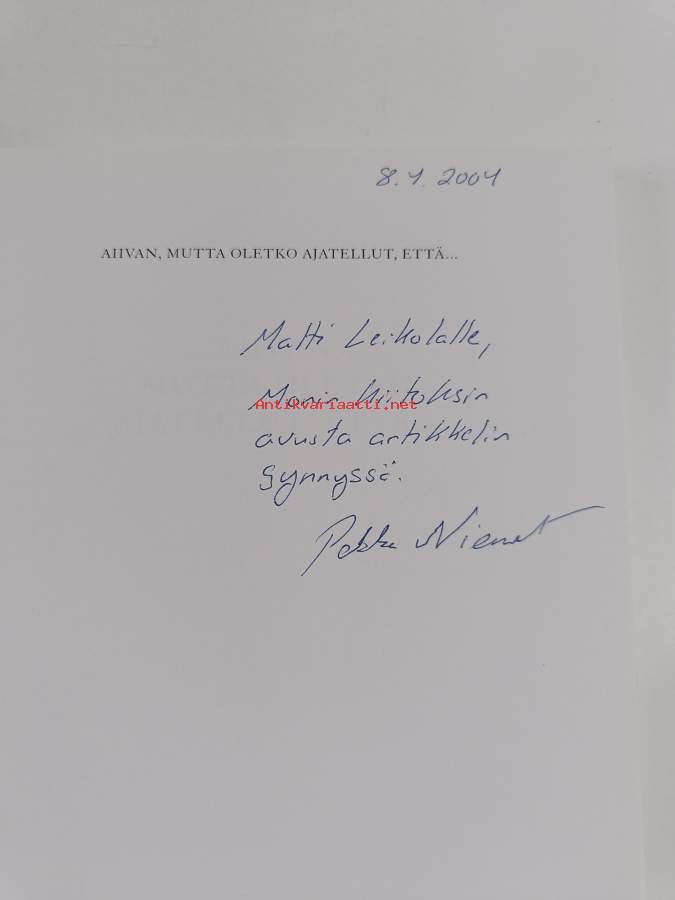 8.1.2001
AHVAN, MUTTA OLETKO AJATELLUT, ETTÄ...
Matti Leikolalle,
Monin kiitoksin
Antikvariaatti.net
avusta artikkelin
synnyssä.
Pekka Niemelä